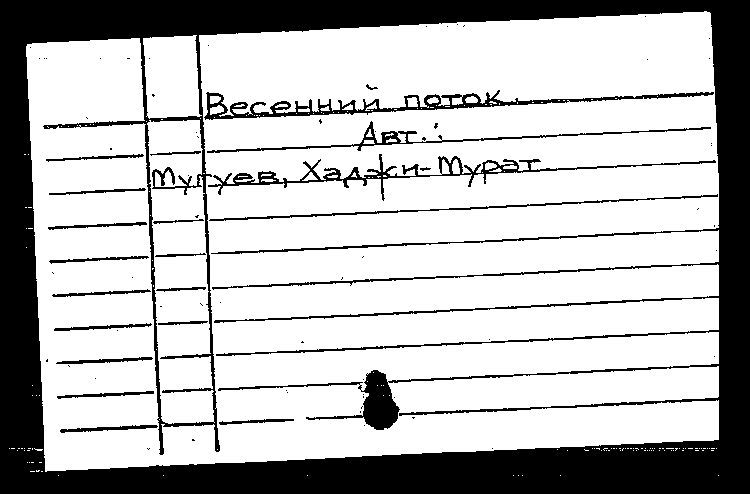 Весенний поток
Авт.:
Мугуев, Хаджи-Мурат